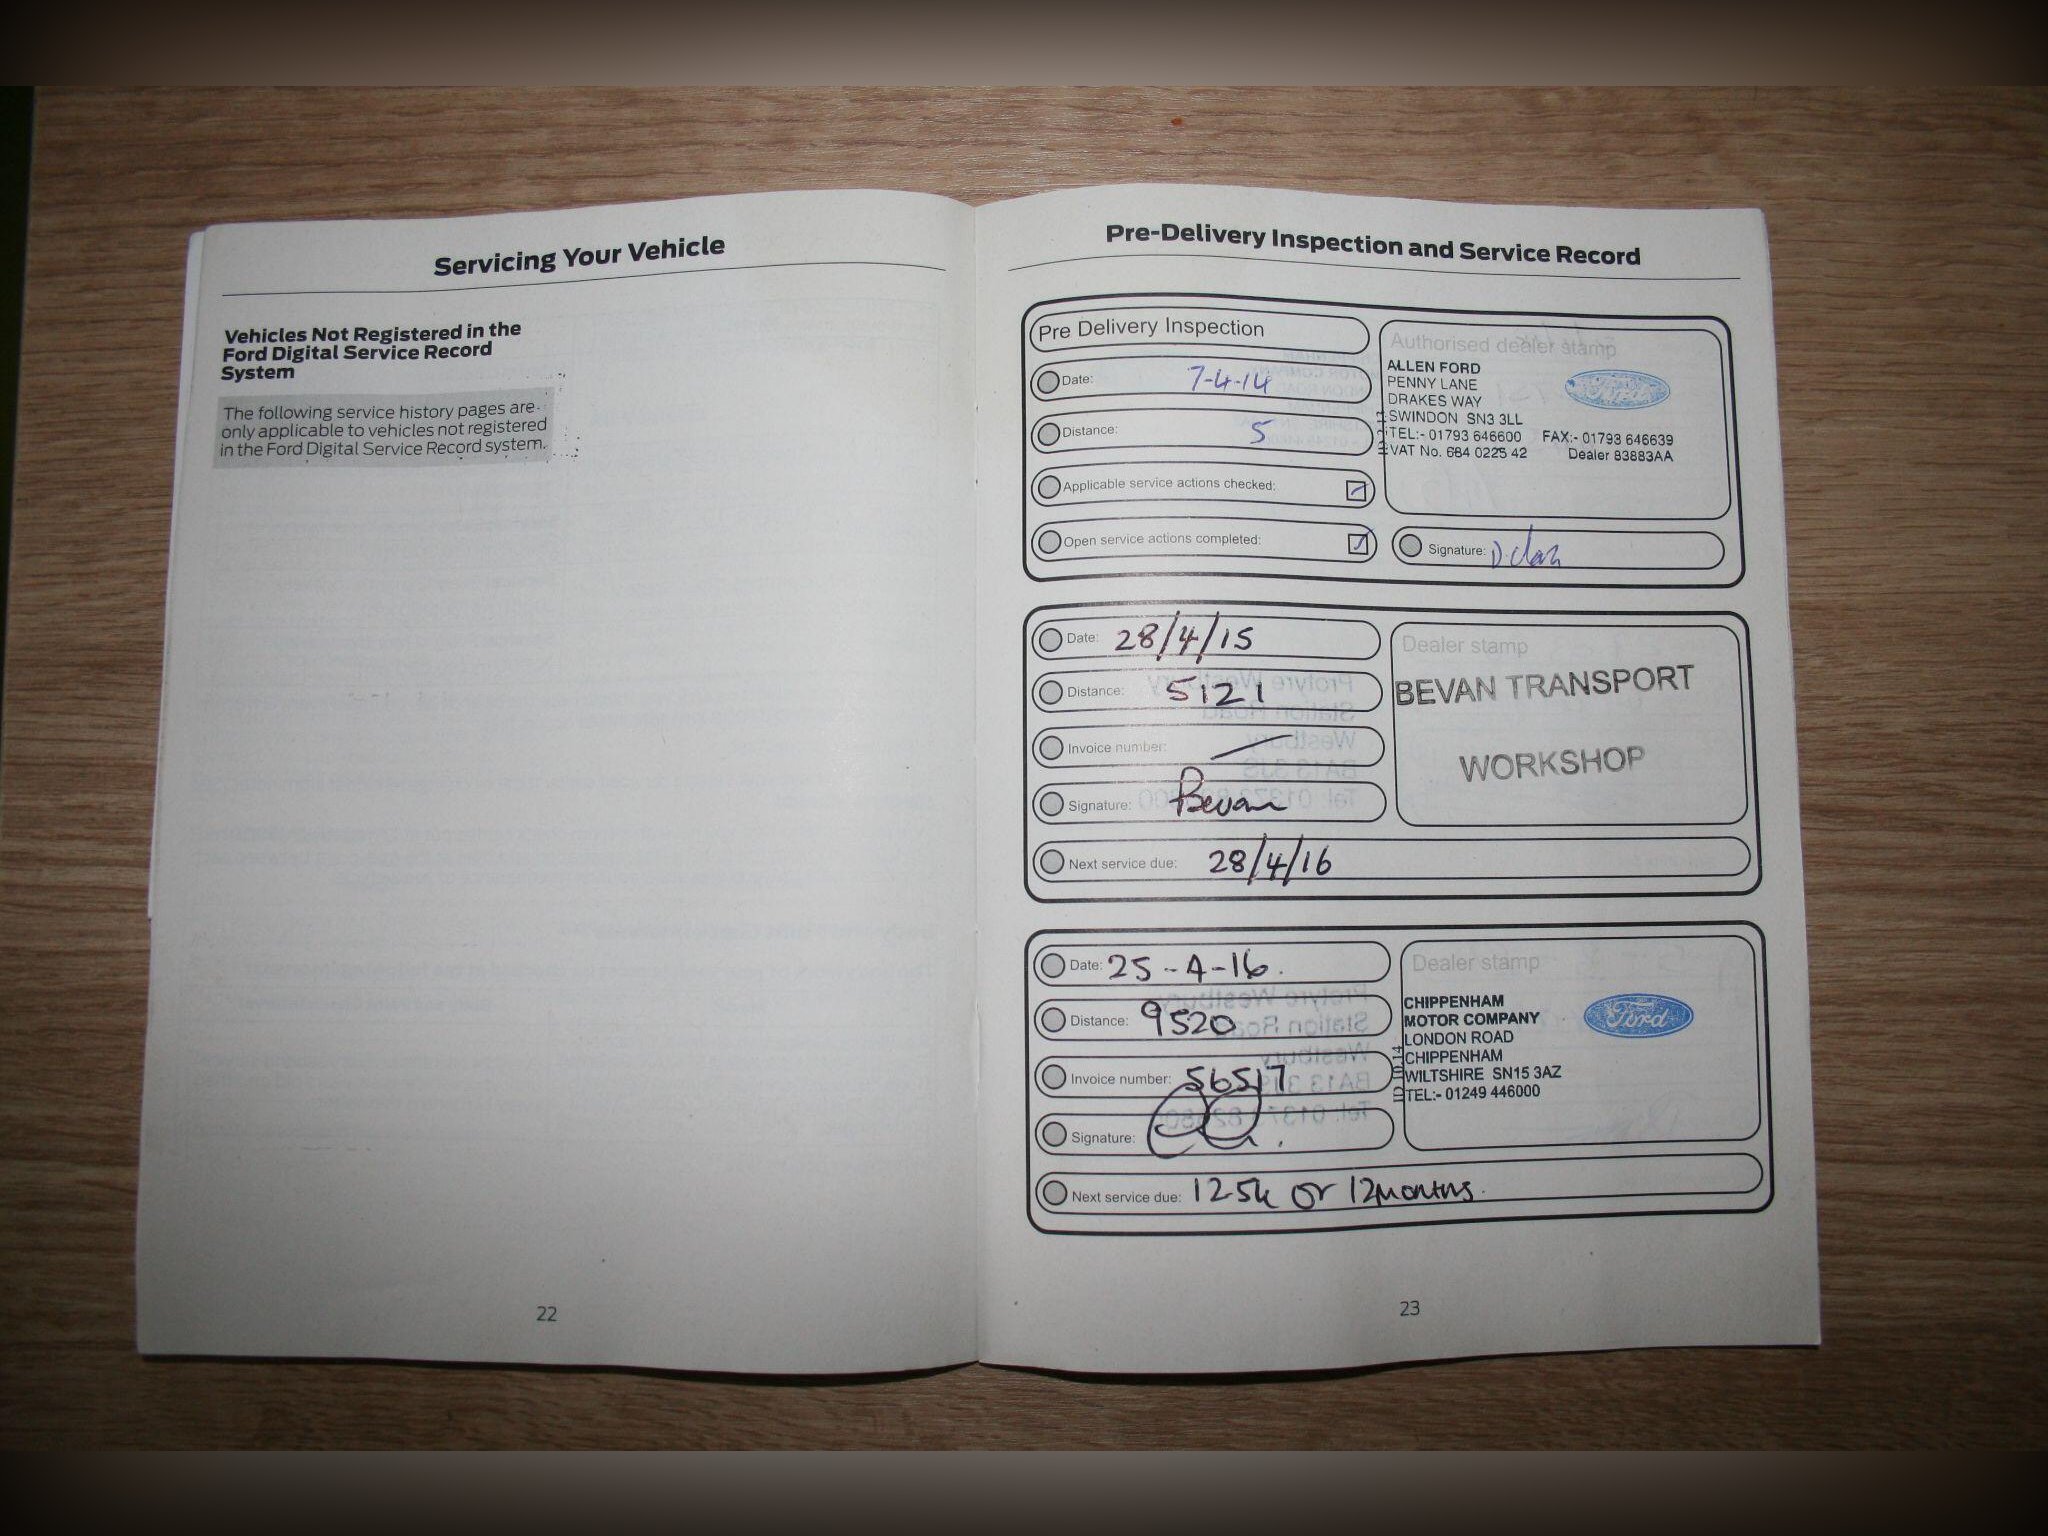 Servicing Your Vehicle
Vehicles Not Registered in the
Ford Digital Service Record
System
The following service history pages are
only applicable to vehicles not registered
in the Ford Digital Service Record system.
22
Pre-Delivery Inspection and Service Record
Pre Delivery Inspection
Date: 7-4-14
Distance: 5
Applicable service actions checked:
Open service actions completed:
Authorised dealer stamp
ALLEN FORD
PENNY LANE
DRAKES WAY
SWINDON SN3 3LL
TEL:- 01793 646600 FAX:- 01793 646639
VAT No. 684 0225 42 Dealer 83883AA
Ford
Signature:
Date: 28/4/15
Distance: 5121
Invoice number:
Signature: Bevan
Next service due: 28/4/16
Dealer stamp
BEVAN TRANSPORT
WORKSHOP
Date: 25-4-16.
Distance: 9520
Invoice number: 56517
Signature:
Next service due: 125k or 12months.
Dealer stamp
CHIPPENHAM
MOTOR COMPANY
LONDON ROAD
CHIPPENHAM
WILTSHIRE SN15 3AZ
TEL:- 01249 446000
Ford
23